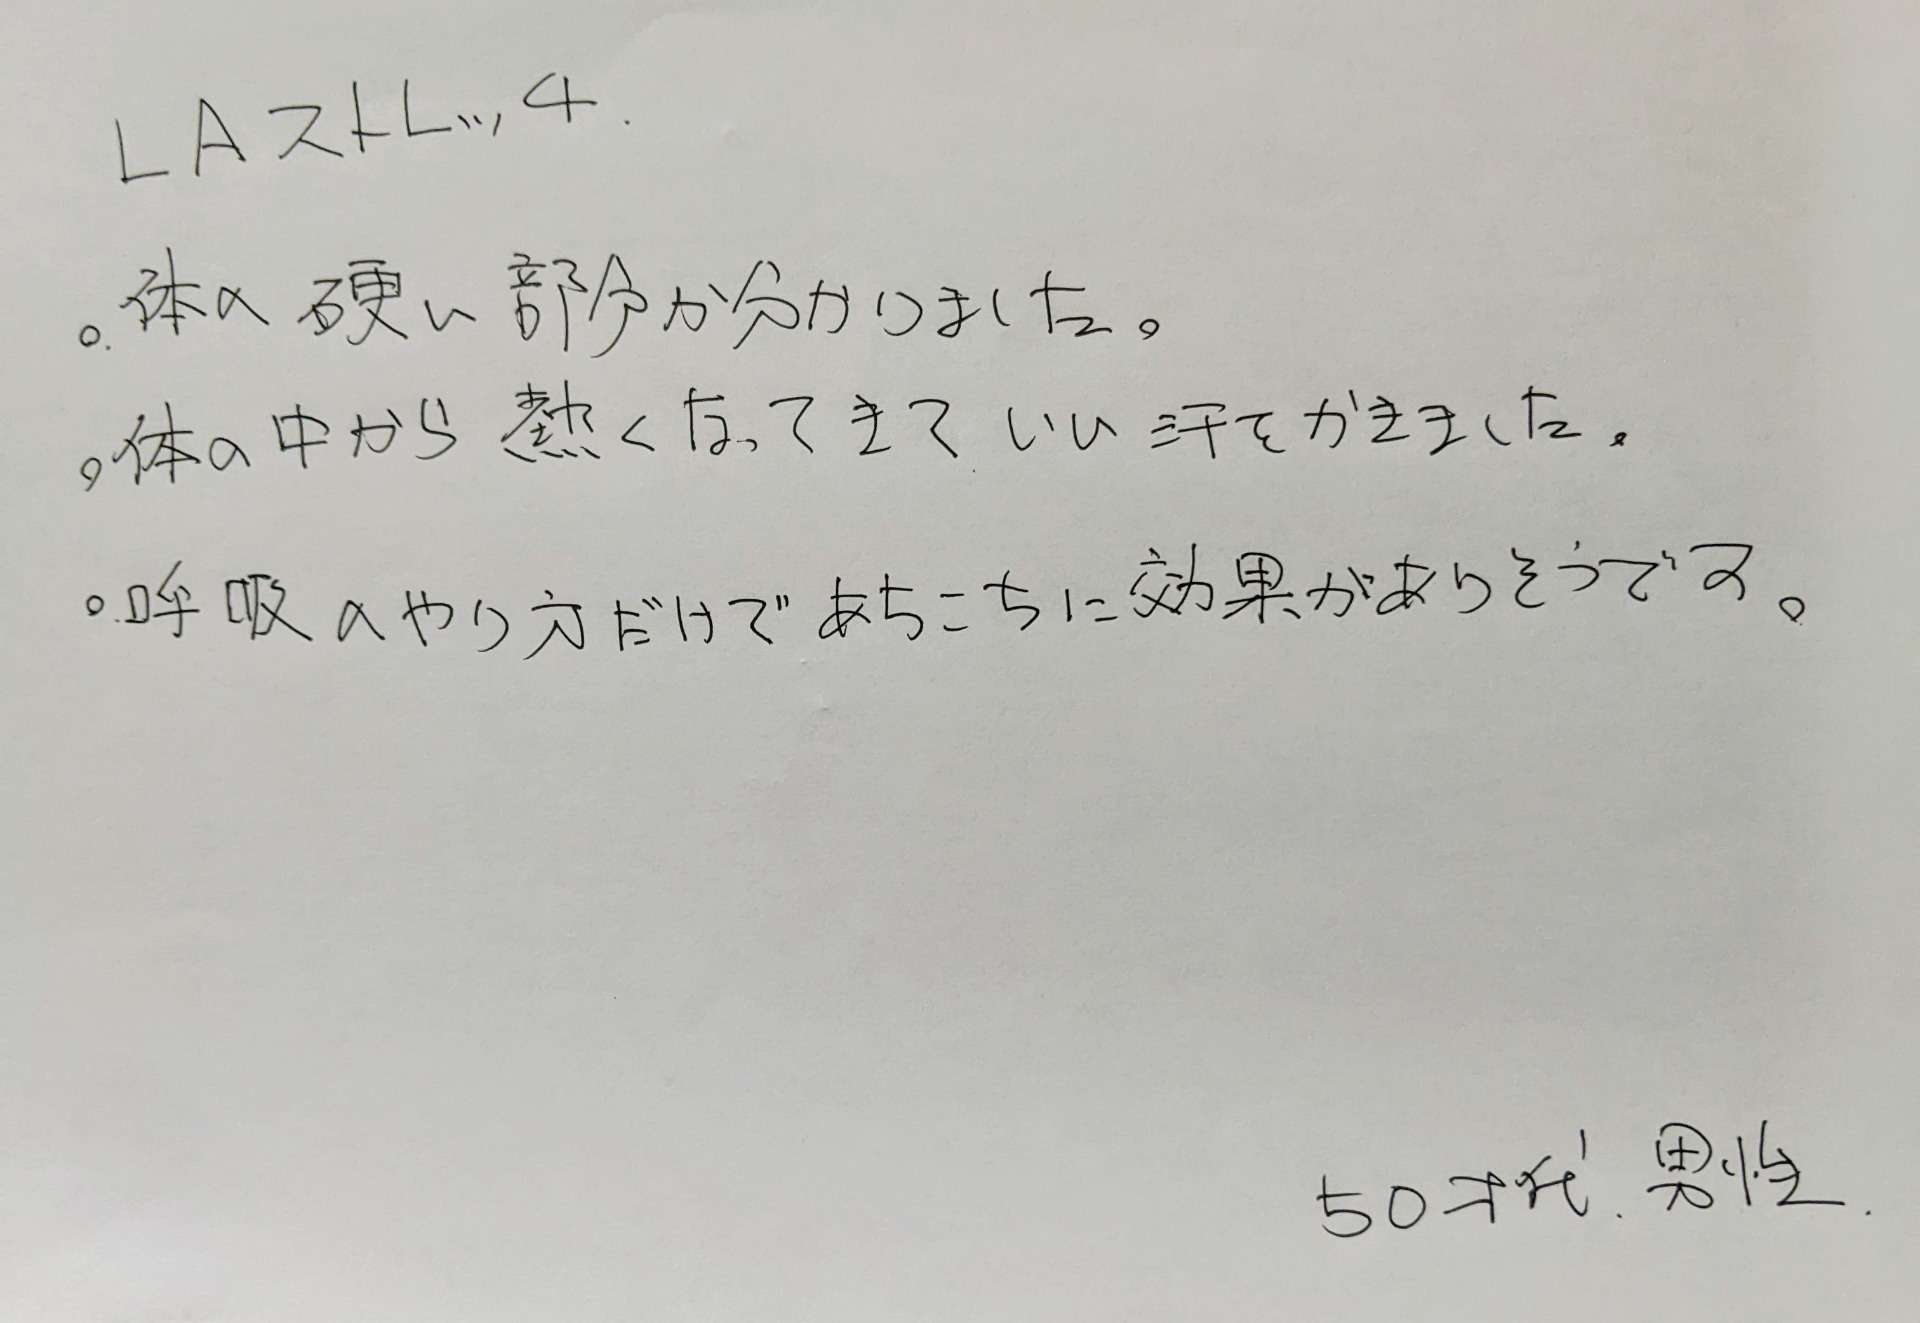 LAストレッチ.
。体の硬い部分が分かりました。
。体の中から熱くなってきていい汗をかきました。
。呼吸のやり方だけであちこちに効果がありそうです。
50才代.男性.